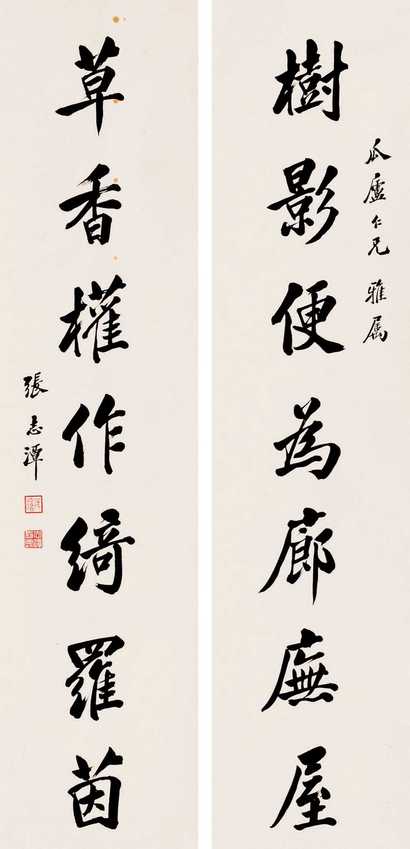 瓜廬仁兄 雅属
樹影便為廊廡屋
草香權作綺羅茵
張志潭